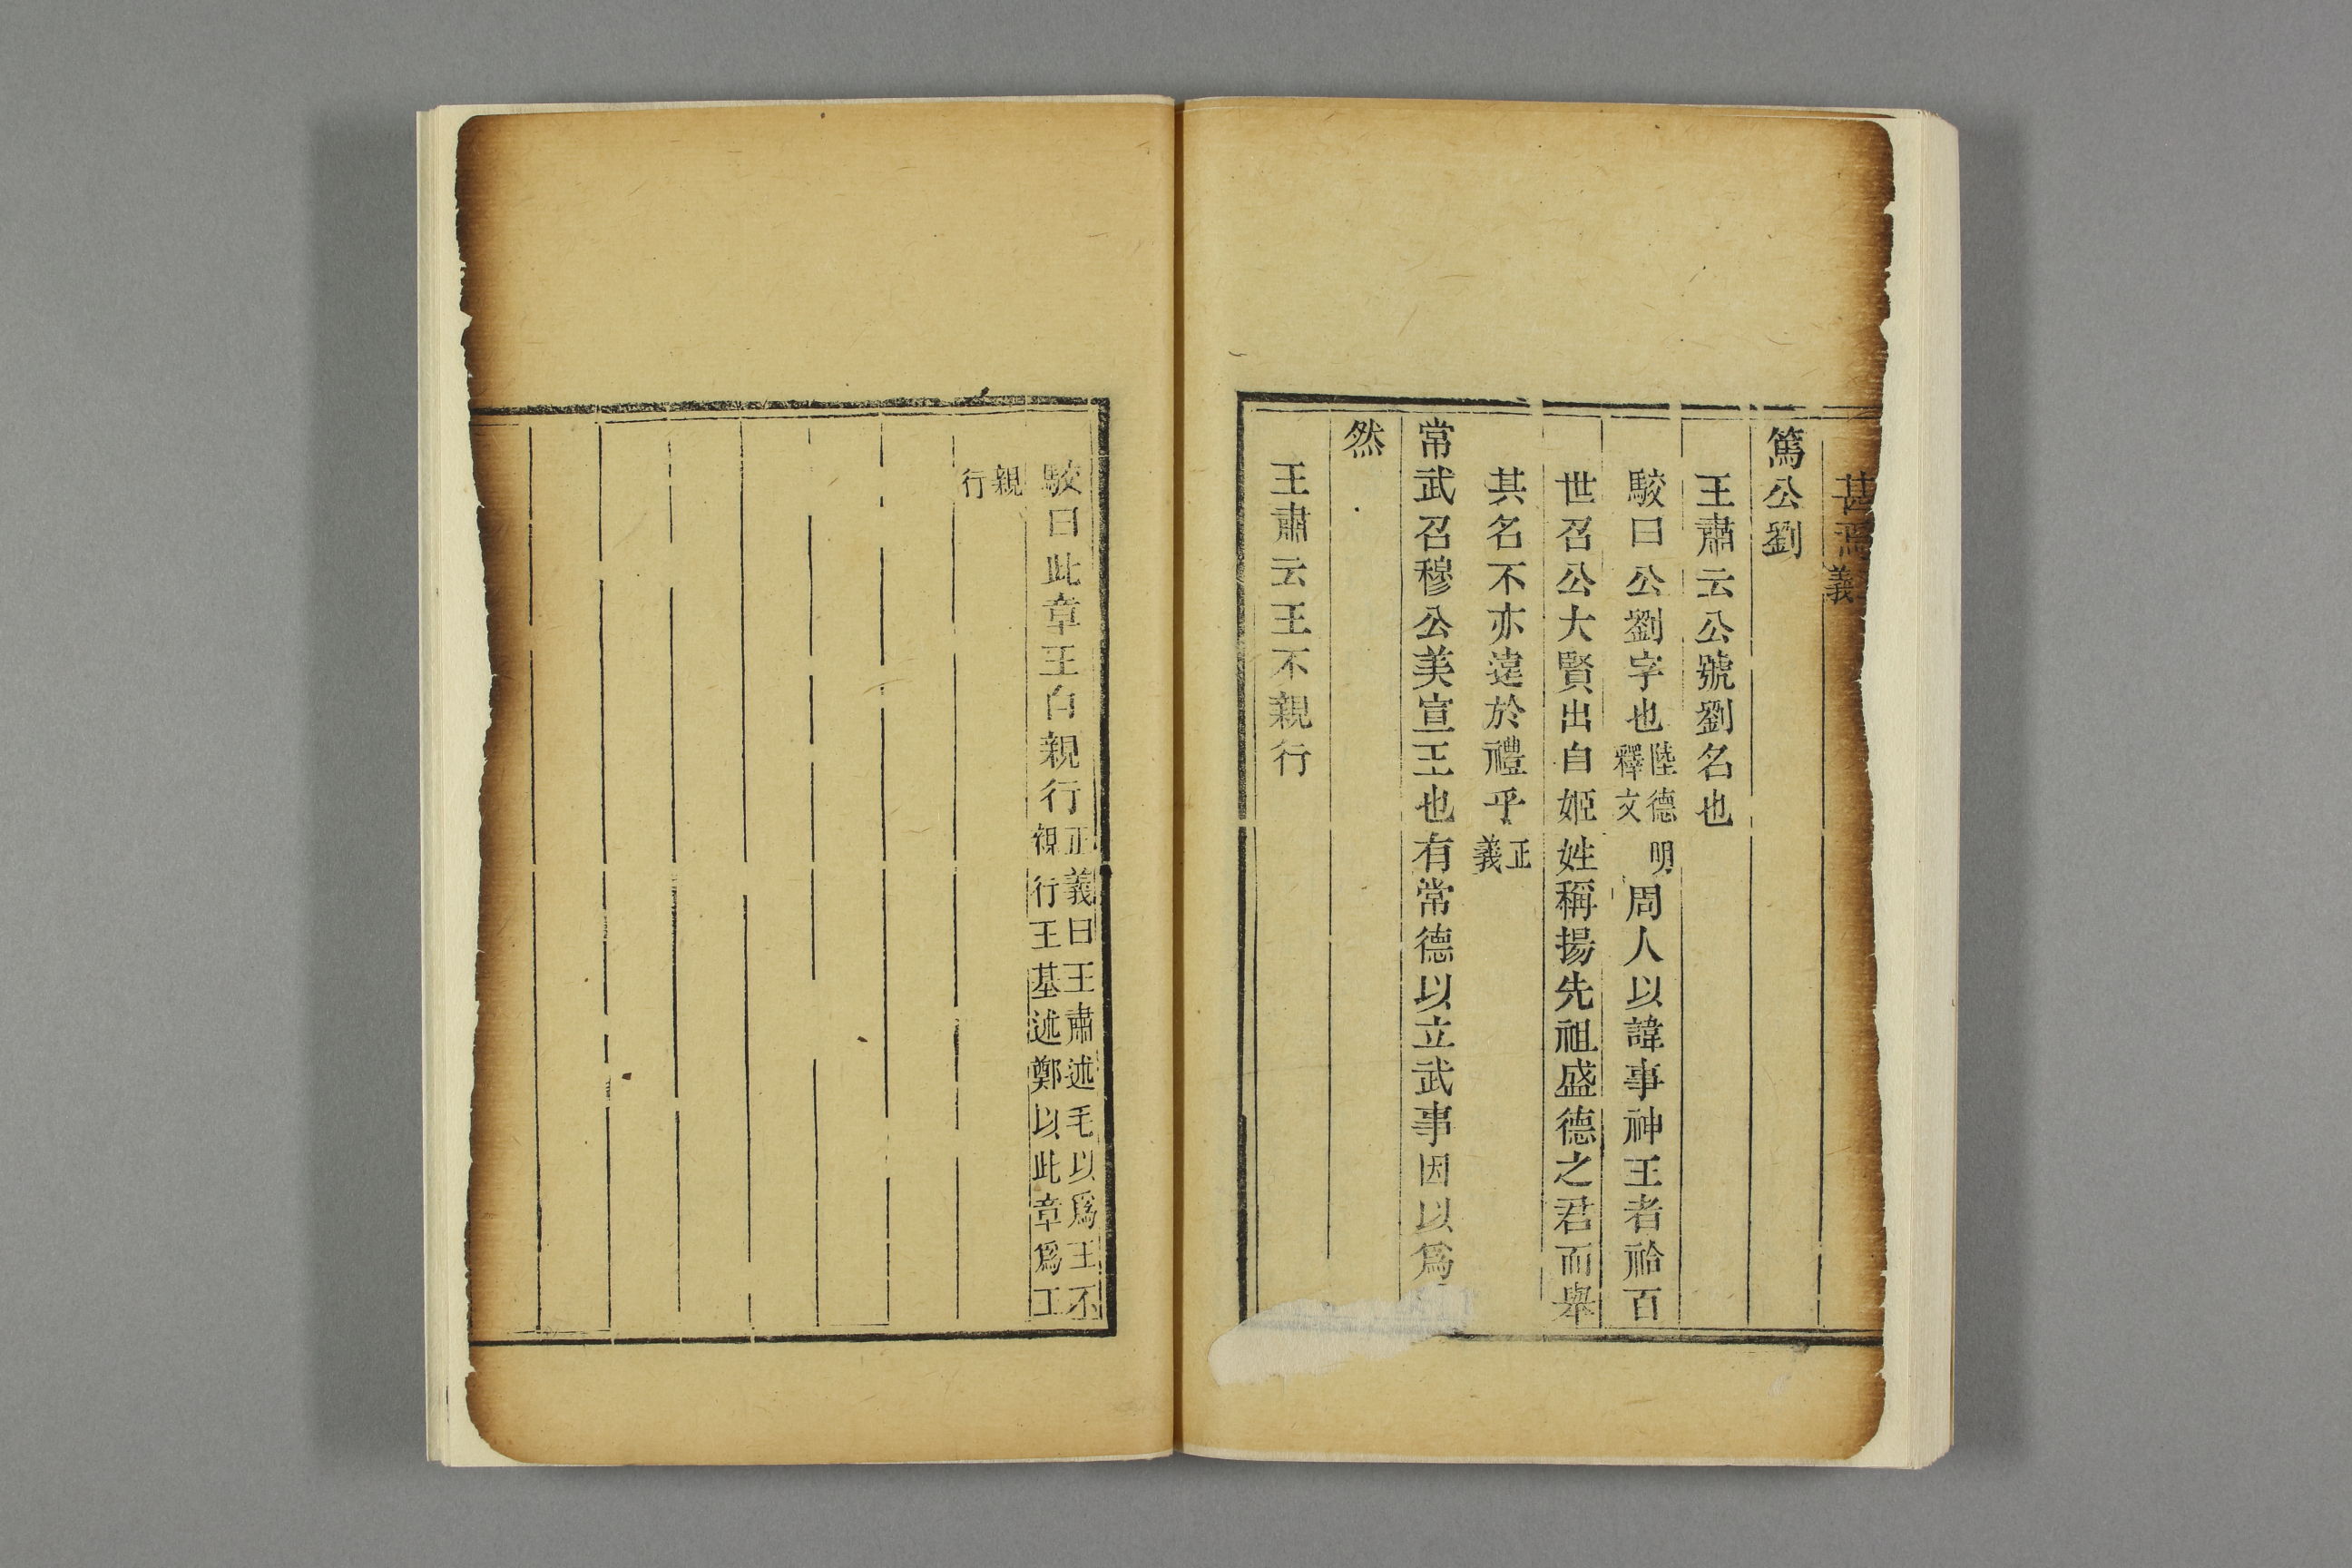 甚焉義
篤公劉
王肅云公號劉名也
駮曰公劉字也陸德明釋文周人以諱事神王者祫百
世召公大賢出自姬姓稱揚先祖盛德之君而舉
其名不亦遠於禮乎正義
常武召穆公美宣王也有常德以立武事因以爲
然
王肅云王不親行
駮曰此章王自親行正義曰王肅述毛以爲王不
親行王基述鄭以此章爲王
親行